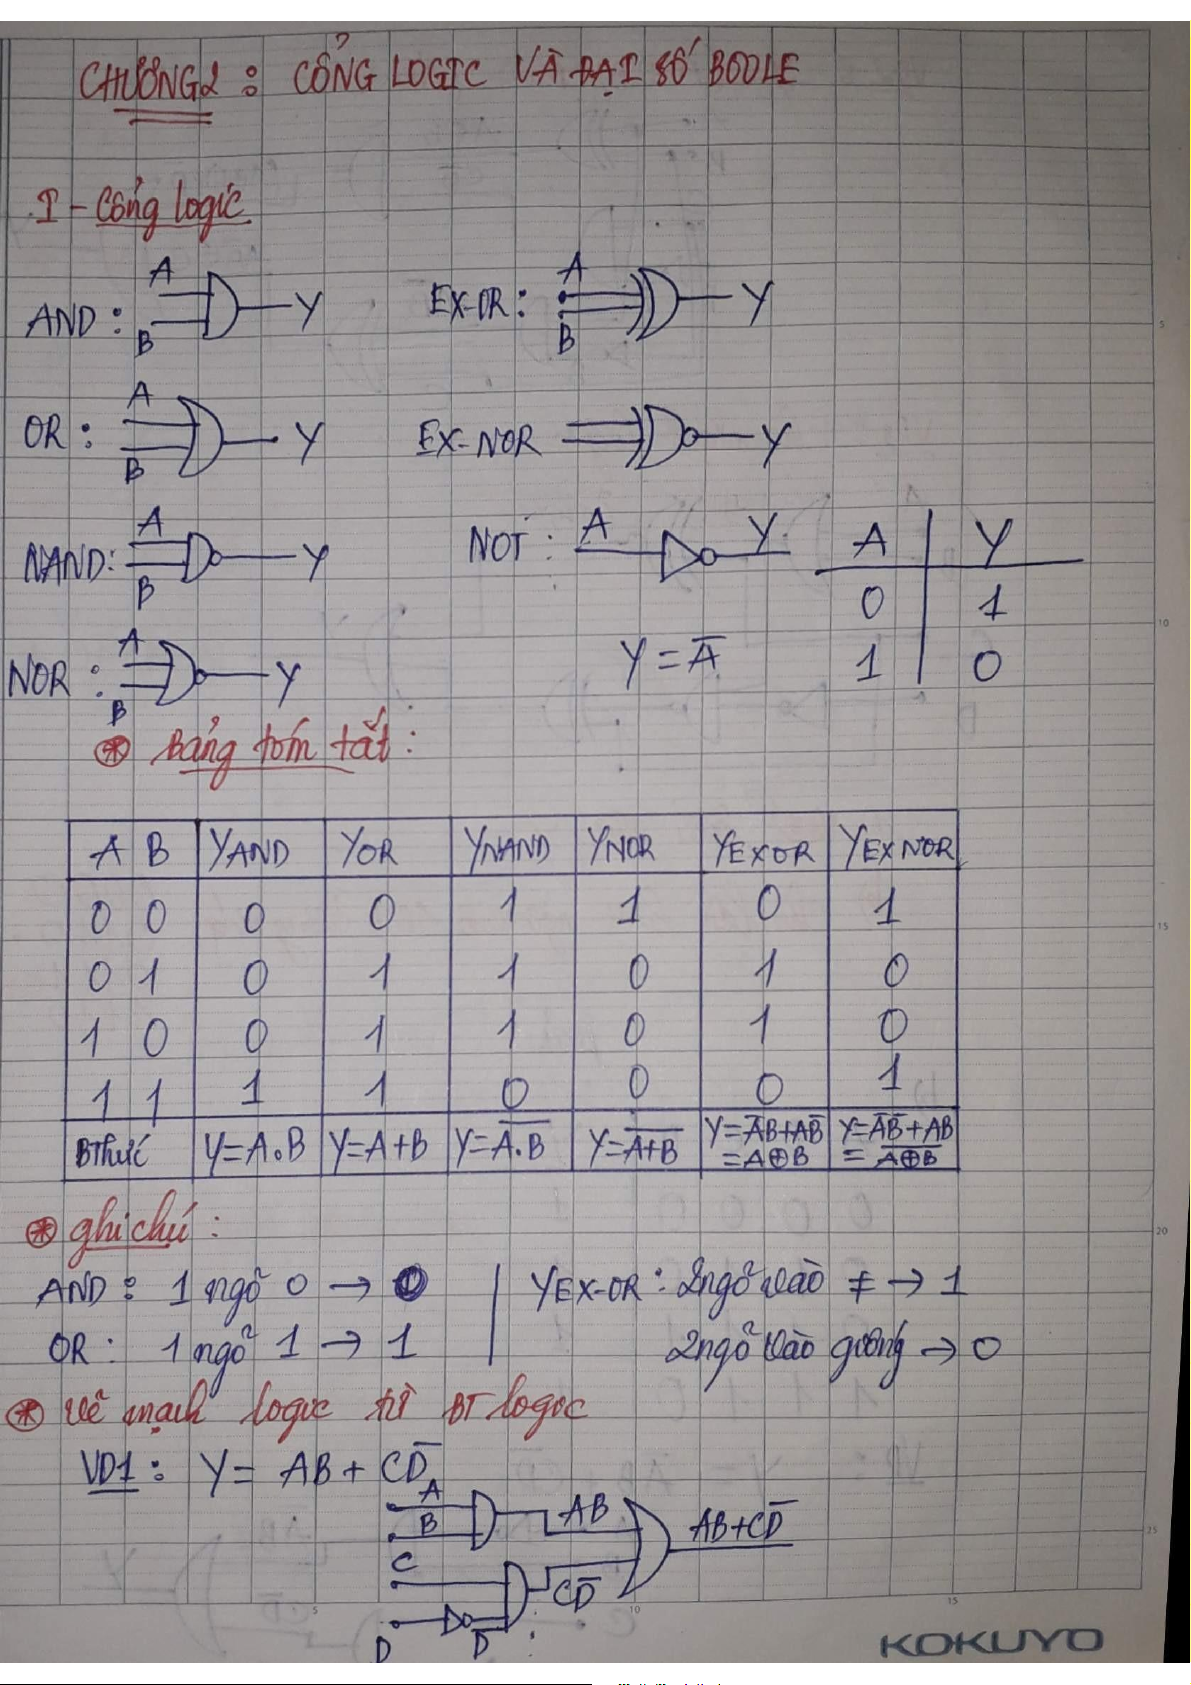 CHƯƠNG2 : CỔNG LOGIC VÀ ĐẠI SỐ BOOLE
I - Cổng logic
AND : A B Y
EX-OR : A B Y
OR : A B Y
EX-NOR Y
NAND: A B Y
NOT : A Y
A Y
0 1
1 0
Y = A̅
NOR : A B Y
⊛ Bảng tóm tắt :
A B YAND YOR YNAND YNOR YEXOR YEXNOR
0 0 0 0 1 1 0 1
0 1 0 1 1 0 1 0
1 0 0 1 1 0 1 0
1 1 1 1 0 0 0 1
BThức Y=A.B Y=A+B Y=A̅.̅B̅ Y=A̅+̅B̅ Y=A̅B+AB̅ =A⊕B Y=A̅B̅+AB = A̅⊕̅B̅
⊛ ghi chú :
AND : 1 ngõ 0 → 0
YEX-OR : 2ngõ vào ≠ → 1
OR : 1 ngõ 1 → 1
2ngõ vào giống → 0
⊛ Vẽ mạch logic từ BT logic
VD1 : Y = AB + CD̅
A
B
AB
AB+CD̅
C
CD̅
D D̅
KOKUYO
5
10
15
20
25
5
10
15